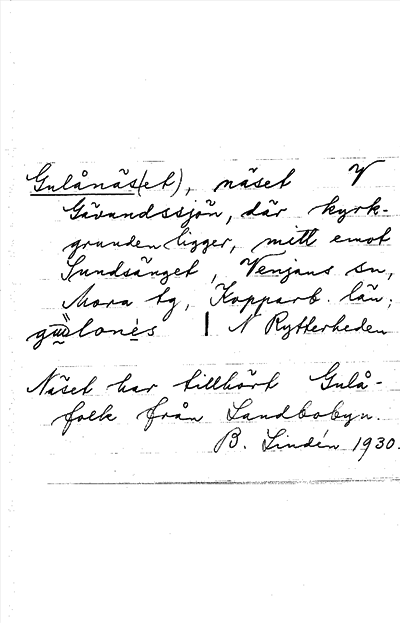 Gulånäs(et), näset V
Gävandssjön, där kyrk-
grunden ligger, mitt emot
Sundsänget, Venjans sn,
Mora tg, Kopparb. län;
N Rytterheden
Näset har tillhört Gulå-
folk från Landbobyn.
B. Lindén 1930.